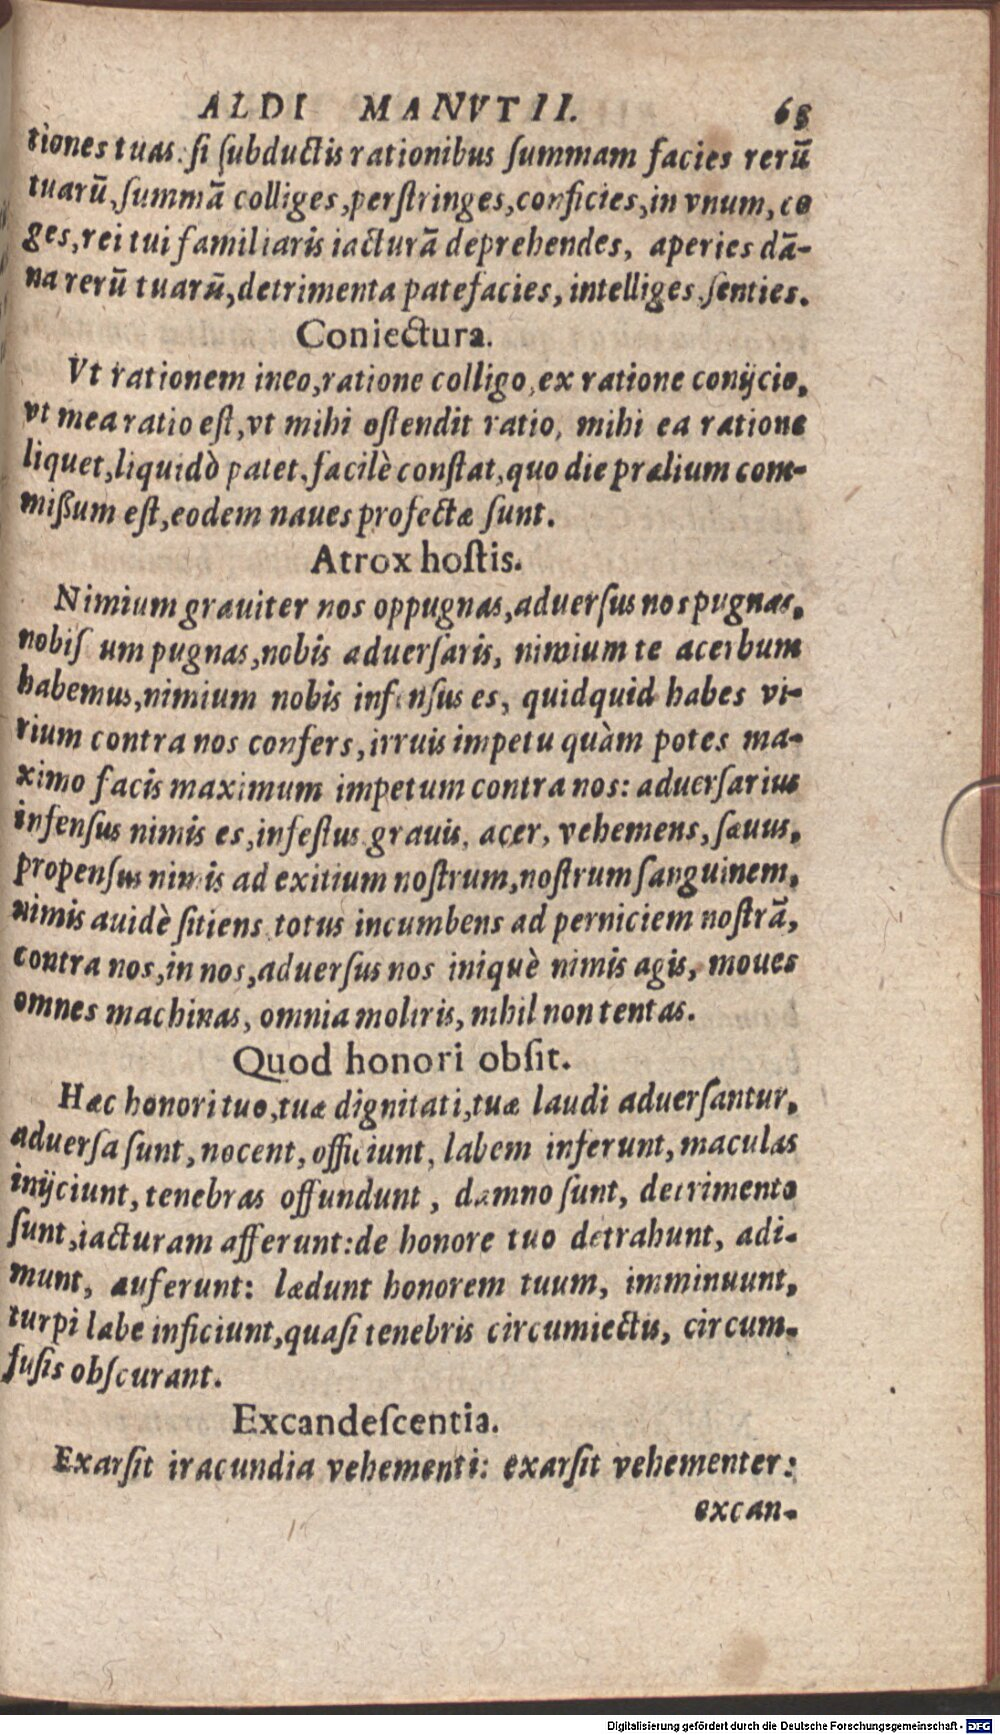 ALDI MANVTII. 65
tiones tuas. si subductis rationibus summam facies rerū
tuarū, summā colliges, perstringes, conficies, in vnum, co
ges, rei tui familiaris iacturā deprehendes, aperies dā-
na rerū tuarū, detrimenta patefacies, intelliges, senties.
Coniectura.
Vt rationem ineo, ratione colligo, ex ratione conijcio,
vt mea ratio est, vt mihi ostendit ratio, mihi ea ratione
liquet, liquidò patet, facilè constat, quo die prælium com-
mißum est, eodem naues profectæ sunt.
Atrox hostis.
Nimium grauiter nos oppugnas, aduersus nos pugnas,
nobis um pugnas, nobis aduersaris, nimium te acerbum
habemus, nimium nobis infensus es, quidquid habes vi-
rium contra nos confers, irruis impetu quàm potes ma-
ximo facis maximum impetum contra nos: aduersarius
infensus nimis es, infestus grauis, acer, vehemens, sæuus,
propensus nimis ad exitium nostrum, nostrum sanguinem,
nimis auidè sitiens totus incumbens ad perniciem nostrā,
contra nos, in nos, aduersus nos iniquè nimis agis, moues
omnes machinas, omnia moliris, nihil non tentas.
Quod honori obsit.
Hæc honori tuo, tuæ dignitati, tuæ laudi aduersantur,
aduersa sunt, nocent, officiunt, labem inferunt, maculas
inijciunt, tenebras offundunt, damno sunt, detrimento
sunt, iacturam afferunt: de honore tuo detrahunt, adi-
munt, auferunt: lædunt honorem tuum, imminuunt,
turpi labe inficiunt, quasi tenebris circumiectis, circum-
fusis obscurant.
Excandescentia.
Exarsit iracundia vehementi: exarsit vehementer:
excan-
Digitalisierung gefördert durch die Deutsche Forschungsgemeinschaft - DFG